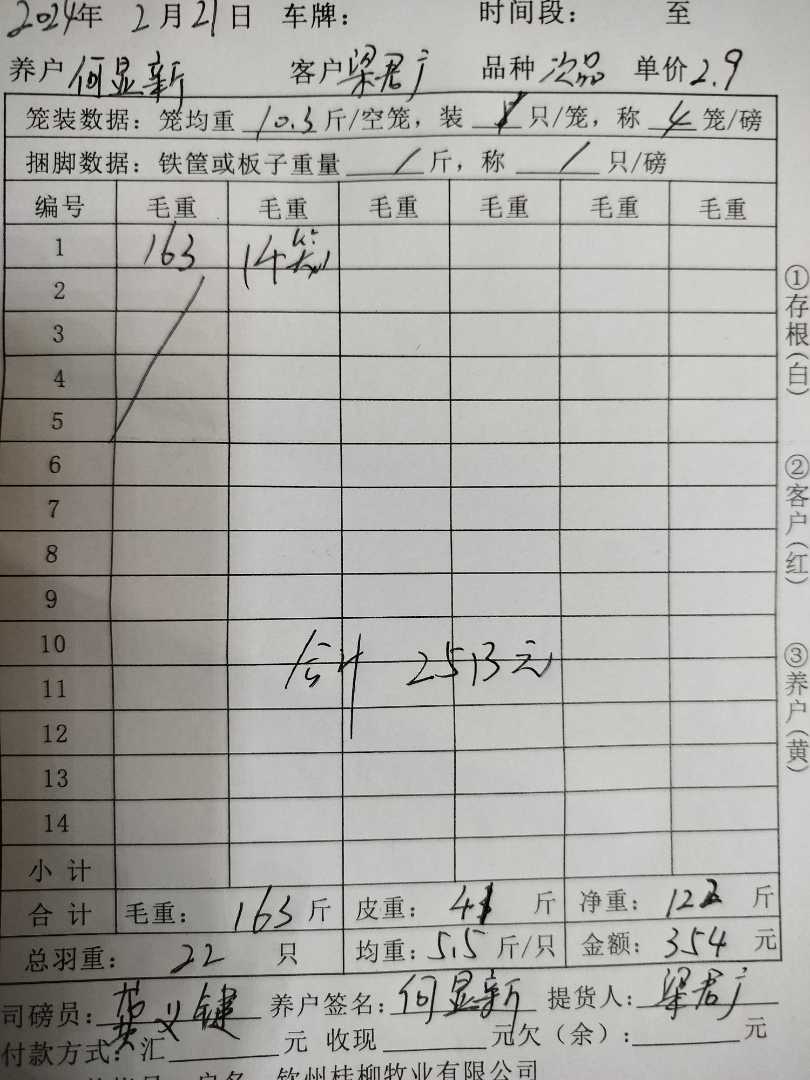 2024年 2月21日 车牌: 时间段: 至
养户 何显新 客户 梁君广 品种 次品 单价 2.9
笼装数据: 笼均重 10.3 斤/空笼, 装 只/笼, 称 4 笼/磅
捆脚数据: 铁筐或板子重量 / 斤, 称 / 只/磅
编号 毛重 毛重 毛重 毛重 毛重 毛重
1 163 14
2
3
4
5
6
7
8
9
10
合计 2513元
11
12
13
14
小计
合计 毛重: 163 斤 皮重: 41 斤 净重: 122 斤
总羽重: 22 只 均重: 5.5 斤/只 金额: 354 元
司磅员: 黄义键 养户签名: 何显新 提货人: 梁君广
付款方式: 汇 元 收现 元欠(余): 元
钦州桂柳牧业有限公司
①存根(白)
②客户(红)
③养户(黄)